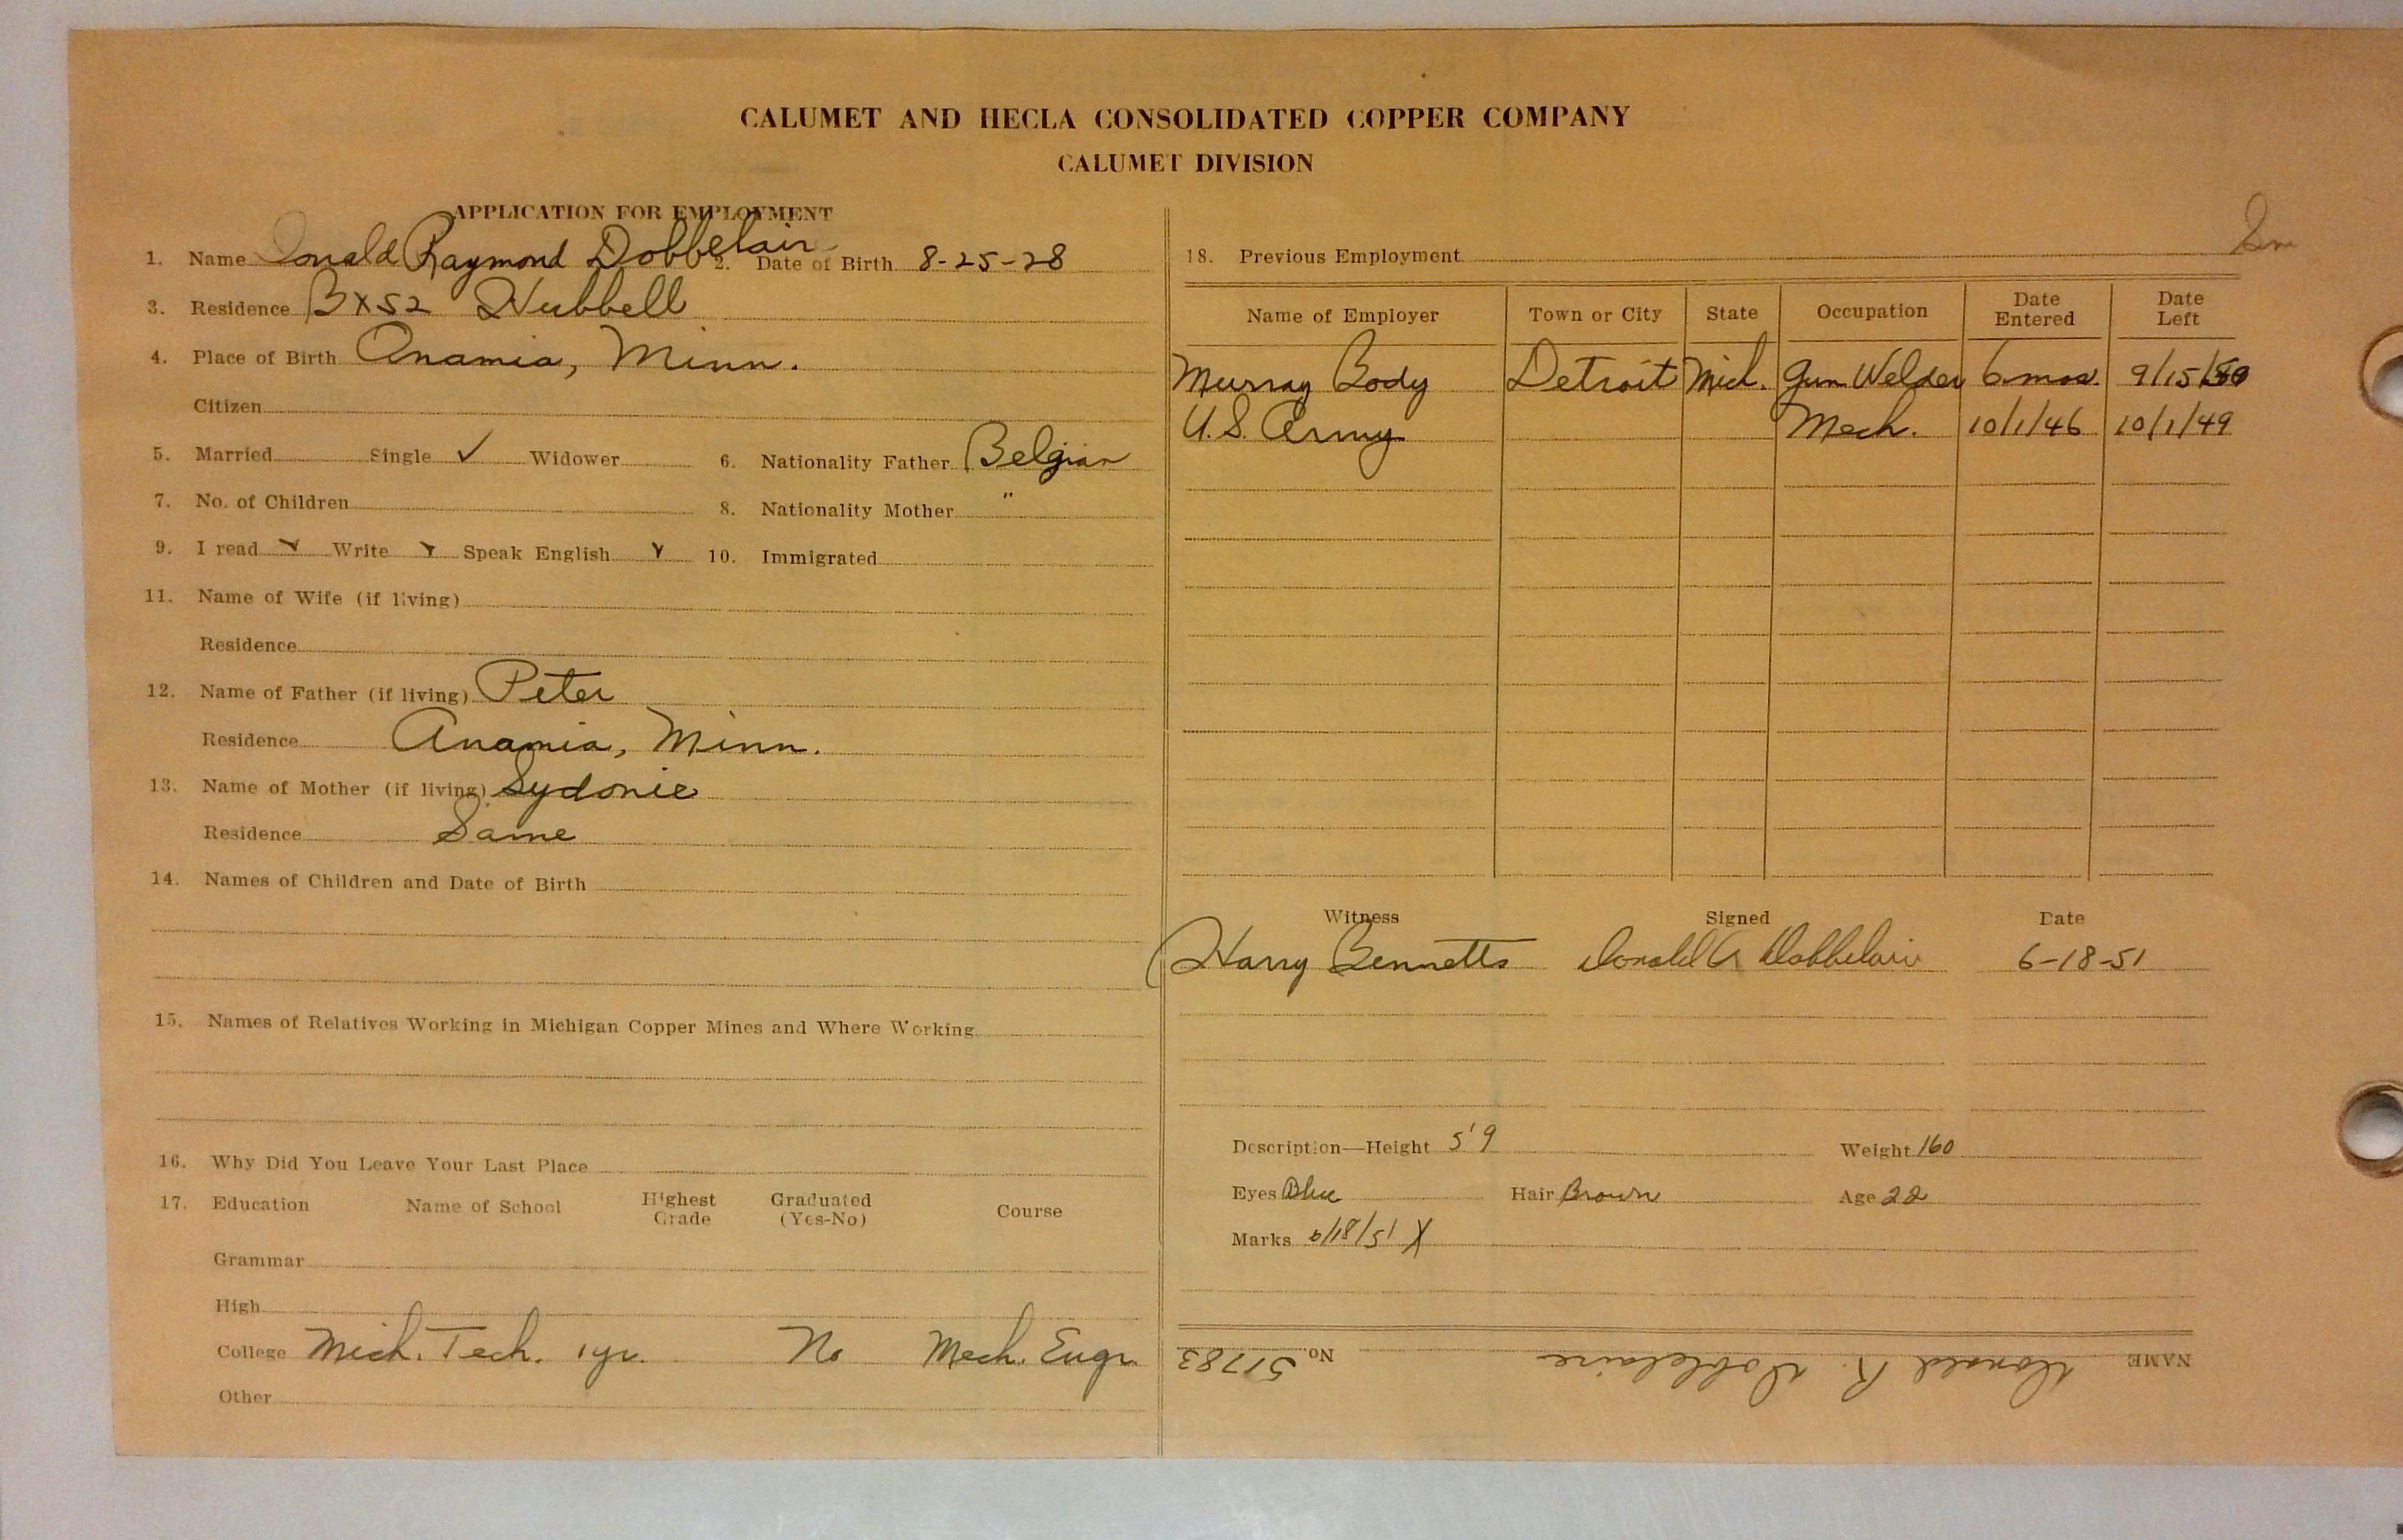 CALUMET AND HECLA CONSOLIDATED COPPER COMPANY
CALUMET DIVISION
APPLICATION FOR EMPLOYMENT
1. Name Donald Raymond Dobbelair 2. Date of Birth 8-25-28
3. Residence Bx 52 Hubbell
4. Place of Birth Anamia, Minn.
Citizen
5. Married Single ✓ Widower 6. Nationality Father Belgian
7. No. of Children 8. Nationality Mother "
9. I read ✓ Write ✓ Speak English ✓ 10. Immigrated
11. Name of Wife (if living)
Residence
12. Name of Father (if living) Peter
Residence Anamia, Minn.
13. Name of Mother (if living) Sydonie
Residence Same
14. Names of Children and Date of Birth
15. Names of Relatives Working in Michigan Copper Mines and Where Working
16. Why Did You Leave Your Last Place
17. Education Name of School Highest Grade Graduated (Yes-No) Course
Grammar
High
College Mich. Tech. 1 yr. No Mech. Engr.
Other
18. Previous Employment
Name of Employer Town or City State Occupation Date Entered Date Left
Murray Body Detroit Mich. Gun Welder 6 mos. 9/15/50
U.S. Army Mech. 10/1/46 10/1/49
Witness Signed Date
Harry Bennetts Donald R Dobbelair 6-18-51
Description—Height 5'9 Weight 160
Eyes Blue Hair Brown Age 22
Marks 6/18/51 X
NAME Donald R. Dobbelaire No. 51783